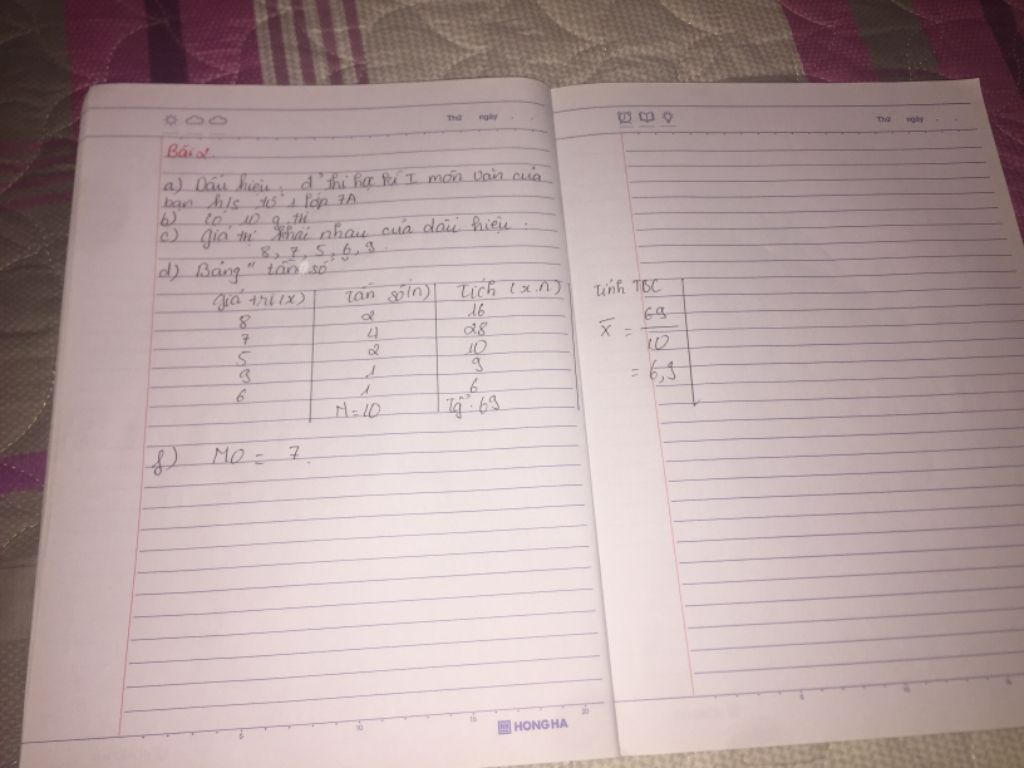 Thứ ngày . .
Bài 2.
a) Dấu hiệu : đ' thi học kì I môn văn của
bạn h/s tổ 1 lớp 7A
b) Có 10 g trị
c) Giá trị khác nhau của dấu hiệu :
8, 7, 5, 6, 9.
d) Bảng "tần số"
Giá trị (x) Tần số (n) Tích (x.n)
8 2 16
7 4 28
5 2 10
9 1 9
6 1 6
N=10 Tg : 69
f) MO = 7.
5 10 15 20
HONG HA
Thứ ngày . .
Tính TBC
X̄ = 69
10
= 6,9